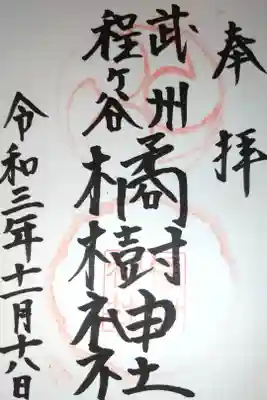 奉拝
武州
程ヶ谷
橘樹神社
令和三年十一月十八日